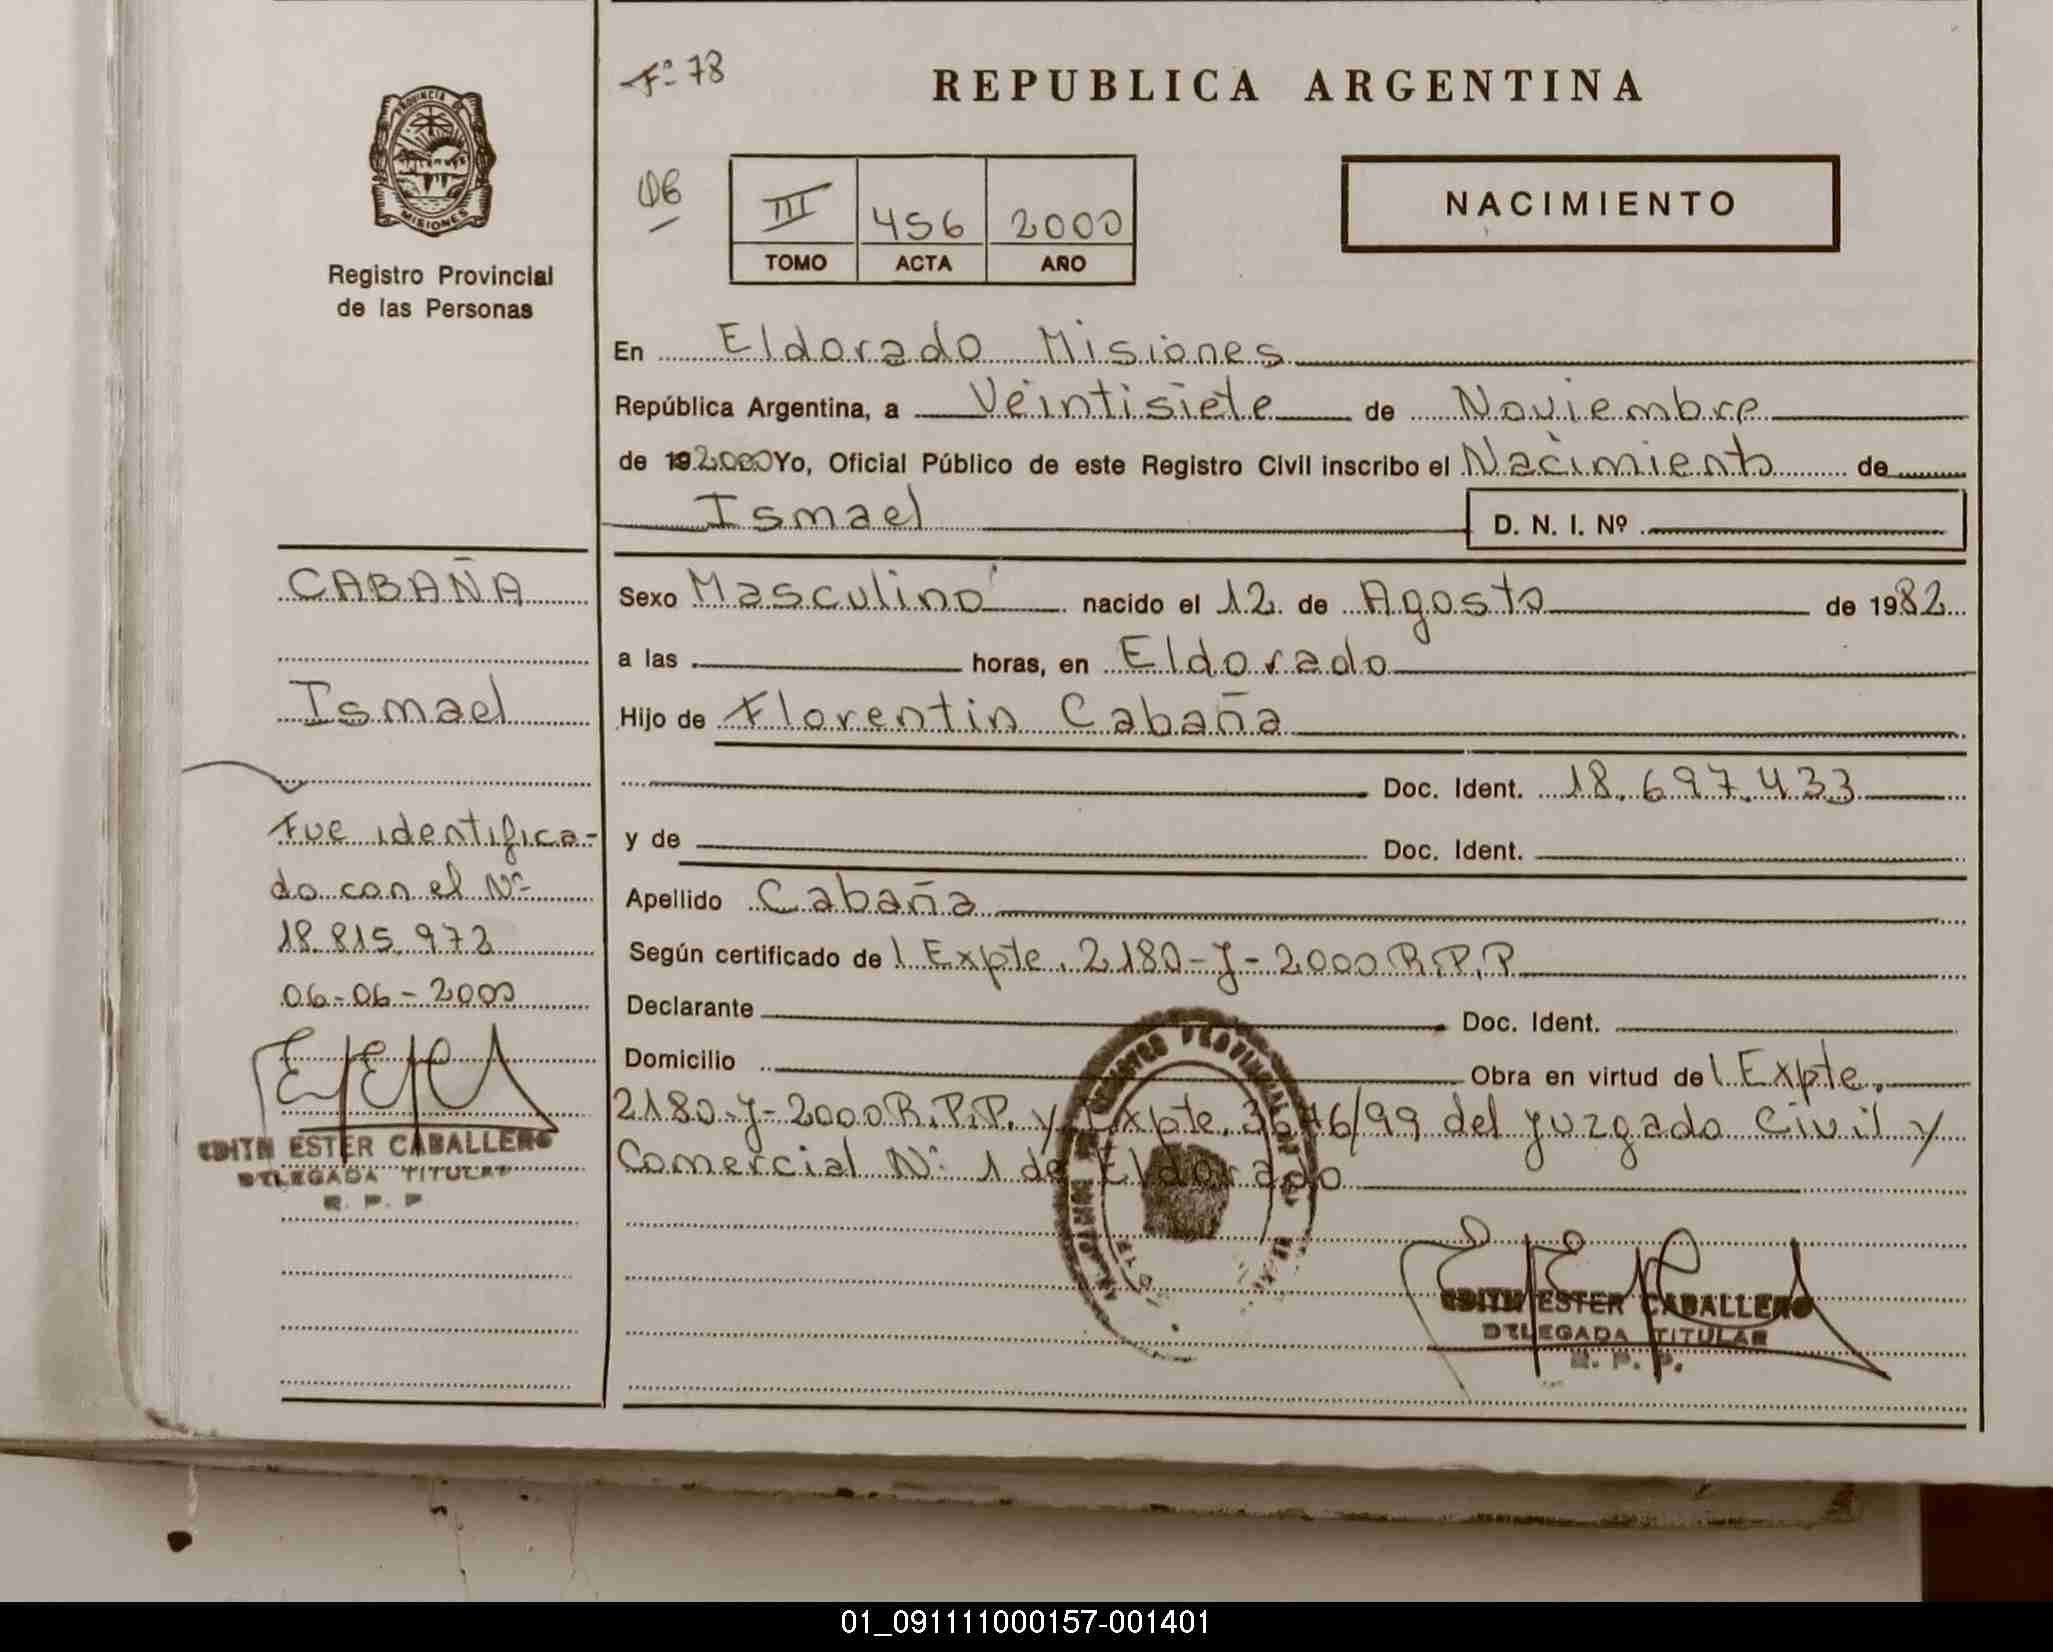 PROVINCIA DE
MISIONES
Registro Provincial
de las Personas
Fº 78
REPUBLICA ARGENTINA
06
III 456 2000
TOMO ACTA AÑO
NACIMIENTO
En Eldorado Misiones
República Argentina, a Veintisiete de Noviembre
de 192000 Yo, Oficial Público de este Registro Civil inscribo el Nacimiento de
Ismael D. N. I. Nº
CABAÑA
Ismael
Fue identifica-
do con el Nº
18.815.972
06-06-2000
EDITH ESTER CABALLERO
DELEGADA TITULAR
R. P. P
Sexo Masculino nacido el 12 de Agosto de 1982
a las horas, en Eldorado
Hijo de Florentin Cabaña
Doc. Ident. 18.697.433
y de Doc. Ident.
Apellido Cabaña
Según certificado de l Expte. 2180-J-2000 R.P.P
Declarante Doc. Ident.
Domicilio Obra en virtud de l Expte.
2180-J-2000 R.P.P. y Expte. 3676/99 del Juzgado Civil y
Comercial Nº 1 de Eldorado
EDITH ESTER CABALLERO
DELEGADA TITULAR
R. P. P.
01_091111000157-001401